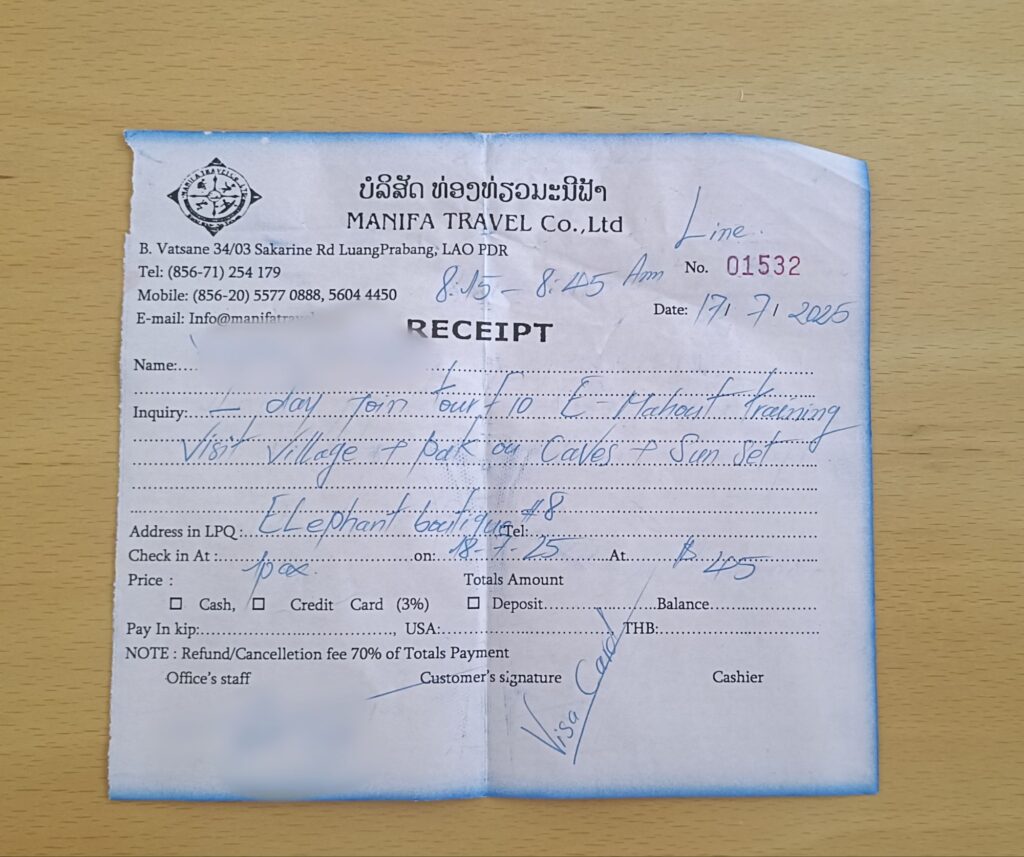 ບໍລິສັດ ທ່ອງທ່ຽວມະນີຟ້າ
MANIFA TRAVEL Co.,Ltd
Line
B. Vatsane 34/03 Sakarine Rd LuangPrabang, LAO PDR
Tel: (856-71) 254 179
No. 01532
Mobile: (856-20) 5577 0888, 5604 4450
8:15 - 8:45 Am
Date: 17/ 7/ 2025
E-mail: Info@manifatravel
RECEIPT
Name:
Inquiry: - day join tour to E-Mahout training
Visit Village + pak ou Caves + Sun set
Address in LPQ : ELephant boutique #8 Tel:
Check in At : on: 18-7-25 At. $ 45
Price : 1pax. Totals Amount
☐ Cash, ☐ Credit Card (3%) ☐ Deposit Balance
Pay In kip: , USA: THB:
NOTE : Refund/Cancelletion fee 70% of Totals Payment
Office's staff Customer's signature Cashier
Visa Card